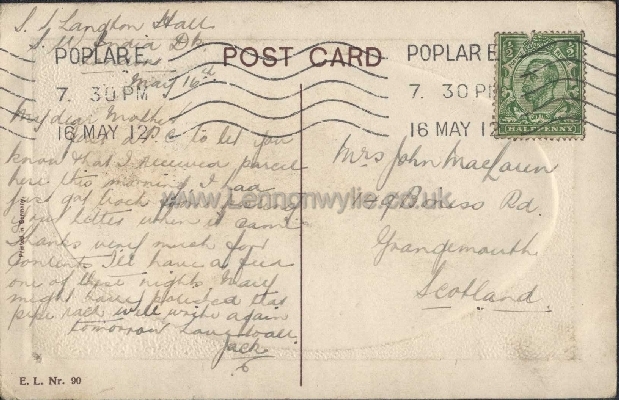 S. S. Langton Hall
S. W. India Dk
May 16th
POST CARD
POPLAR E.
7. 30 PM
16 MAY 12
POPLAR E
7. 30 PM
16 MAY 12
HALFPENNY
My dear Mother
Just a P.C. to let you
know that I received parcel
here this morning I had
just got back from
your letter when it came
Thanks very much for
Contents I'll have a feed
one of these nights Mary
might have polished that
pipe rack will write again
tomorrow Love to all
Jack
Mrs John MacLaren
149 Bo'ness Rd.
Grangemouth
Scotland
www.Lennonwylie.co.uk
Printed in Germany
E. L. Nr. 90